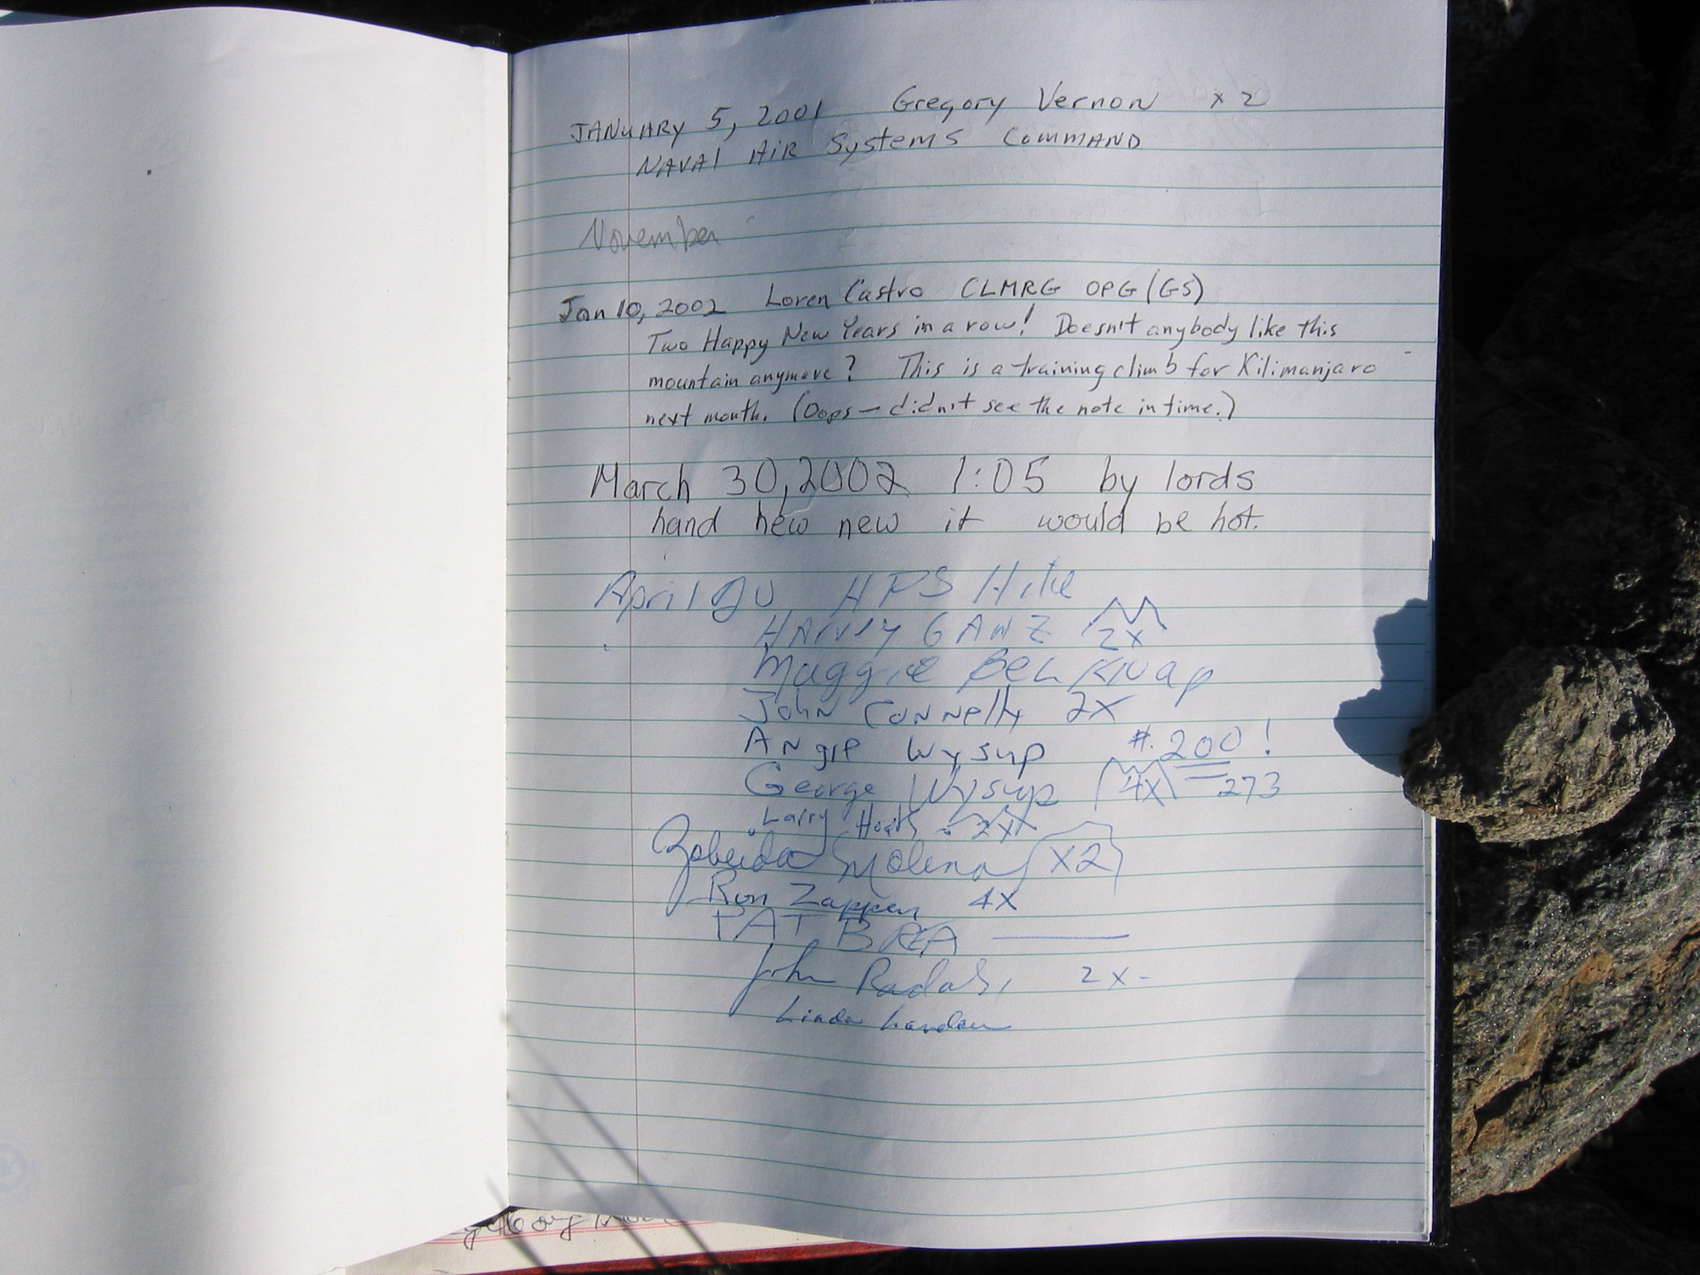 JANUARY 5, 2001 Gregory Vernon x 2
NAVAL AIR Systems COMMAND
November
Jan 10, 2002 Loren Castro CLMRG OPG (GS)
Two Happy New Years in a row! Doesn't anybody like this
mountain anymore? This is a training climb for Kilimanjaro
next month. (Oops — didn't see the note in time.)
March 30, 2002 1:05 by lords
hand hew new it would be hot.
April 20 HPS Hike
HARVEY GANZ 2x
Maggie Belknap
John Connelly 2X
Angie Wysup #. 200!
George Wysup 4X 273
Larry 2x
Zobeida Molina X2
Ron Zappen 4X
PAT BREA
John 2x-
Linda Landau